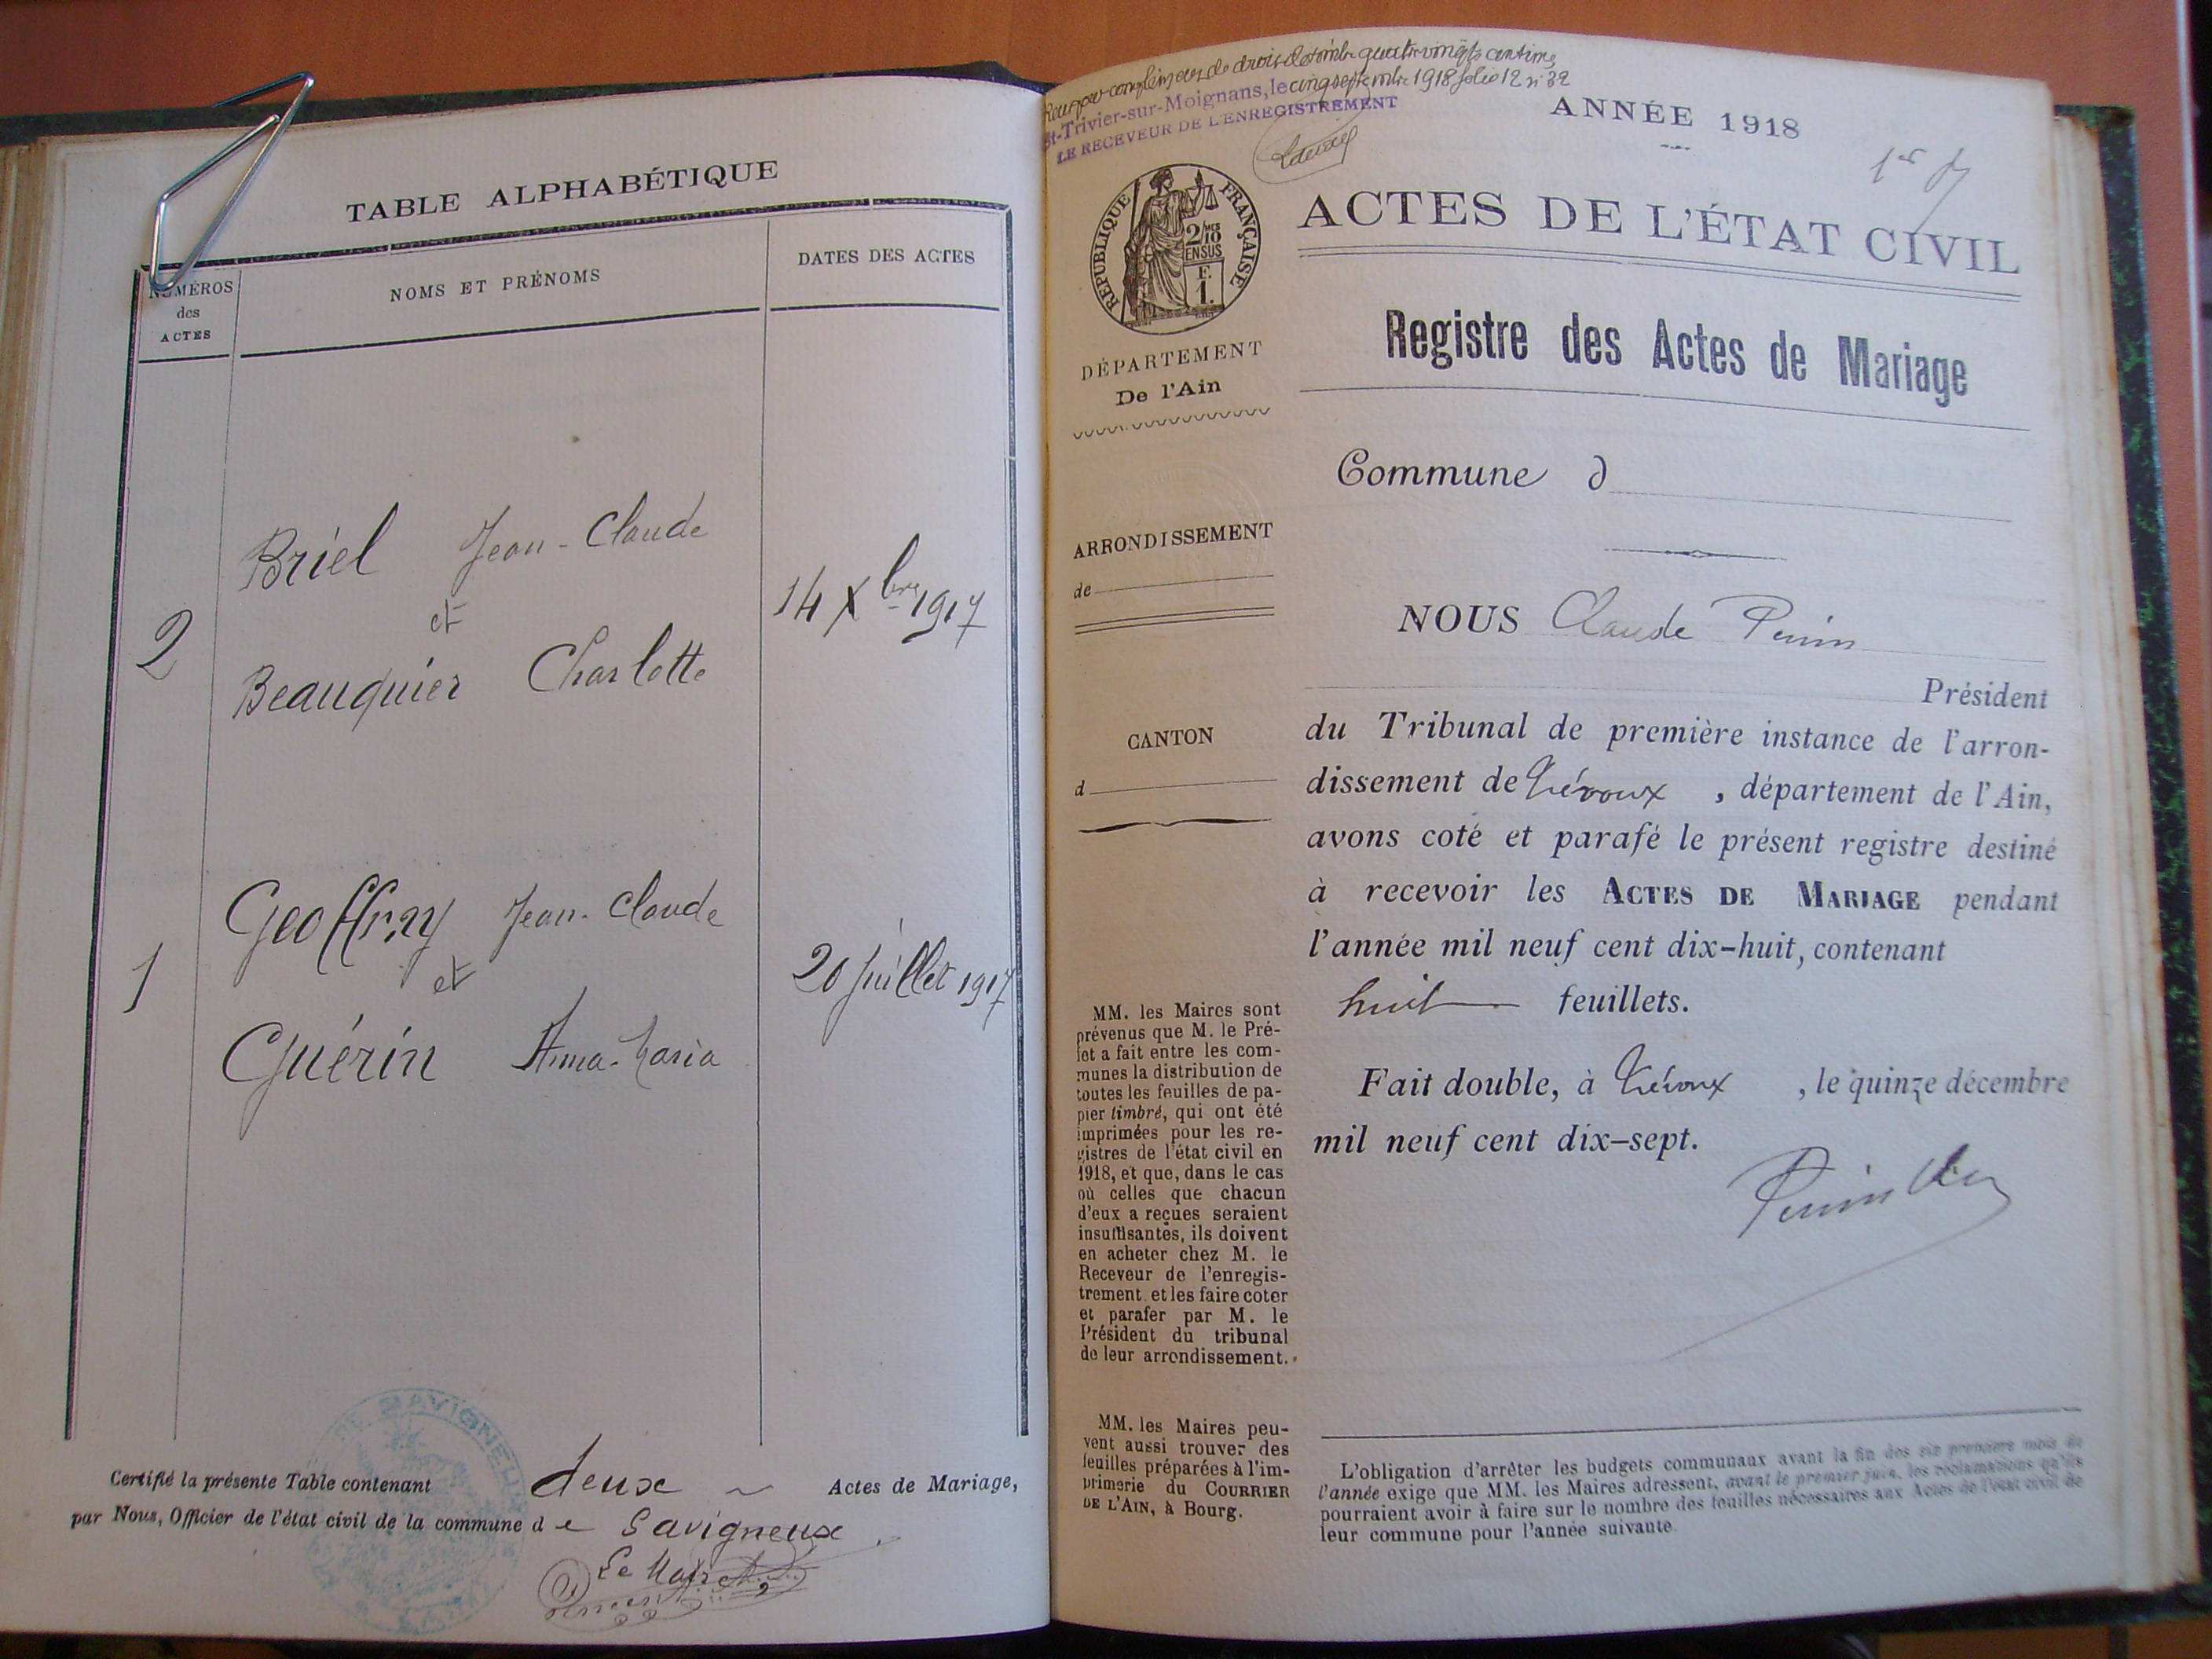 TABLE ALPHABÉTIQUE
NUMÉROS
des
ACTES
NOMS ET PRÉNOMS
DATES DES ACTES
Briel Jean-Claude
et
2
14 Xbre 1917
Beauquier Charlotte
Geoffray Jean-Claude
et
1
20 juillet 1917
Guérin Anna-Maria
DE SAVIGNEUX
Certifié la présente Table contenant deux Actes de Mariage,
par Nous, Officier de l'état civil de la commune de Savigneux
Le Maire
Reçu pour complément de droits de timbre quatre-vingts centimes
St-Trivier-sur-Moignans, le cinq septembre 1918 folio 12 n° 32
LE RECEVEUR DE L'ENREGISTREMENT
ANNÉE 1918
1er
RÉPUBLIQUE FRANÇAISE
2/10mes
EN SUS
F.
1.
DÉPARTEMENT
De l'Ain
ARRONDISSEMENT
de
CANTON
d
MM. les Maires sont
prévenus que M. le Pré-
fet a fait entre les com-
munes la distribution de
toutes les feuilles de pa-
pier timbré, qui ont été
imprimées pour les re-
gistres de l'état civil en
1918, et que, dans le cas
où celles que chacun
d'eux a reçues seraient
insuffisantes, ils doivent
en acheter chez M. le
Receveur de l'enregis-
trement et les faire coter
et parafer par M. le
Président du tribunal
de leur arrondissement.
MM. les Maires peu-
vent aussi trouver des
feuilles préparées à l'im-
primerie du COURRIER
DE L'AIN, à Bourg.
ACTES DE L'ÉTAT CIVIL
Registre des Actes de Mariage
Commune d
NOUS Claude Perrin
Président
du Tribunal de première instance de l'arron-
dissement de Trévoux, département de l'Ain,
avons coté et parafé le présent registre destiné
à recevoir les ACTES DE MARIAGE pendant
l'année mil neuf cent dix-huit, contenant
huit feuillets.
Fait double, à Trévoux, le quinze décembre
mil neuf cent dix-sept.
Perrin
L'obligation d'arrêter les budgets communaux avant la fin des six premiers mois de
l'année exige que MM. les Maires adressent, avant le premier juin, les réclamations qu'ils
pourraient avoir à faire sur le nombre des feuilles nécessaires aux Actes de l'état civil de
leur commune pour l'année suivante.